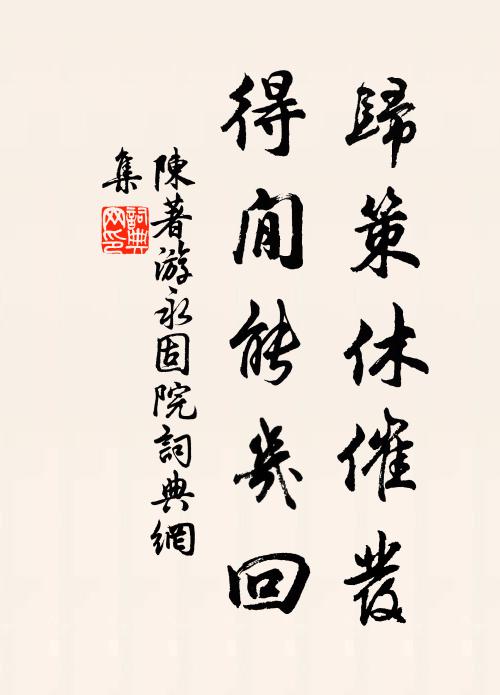 歸策休催發
得閒能幾回
陳著游永固院詞典網
集
詞典网印